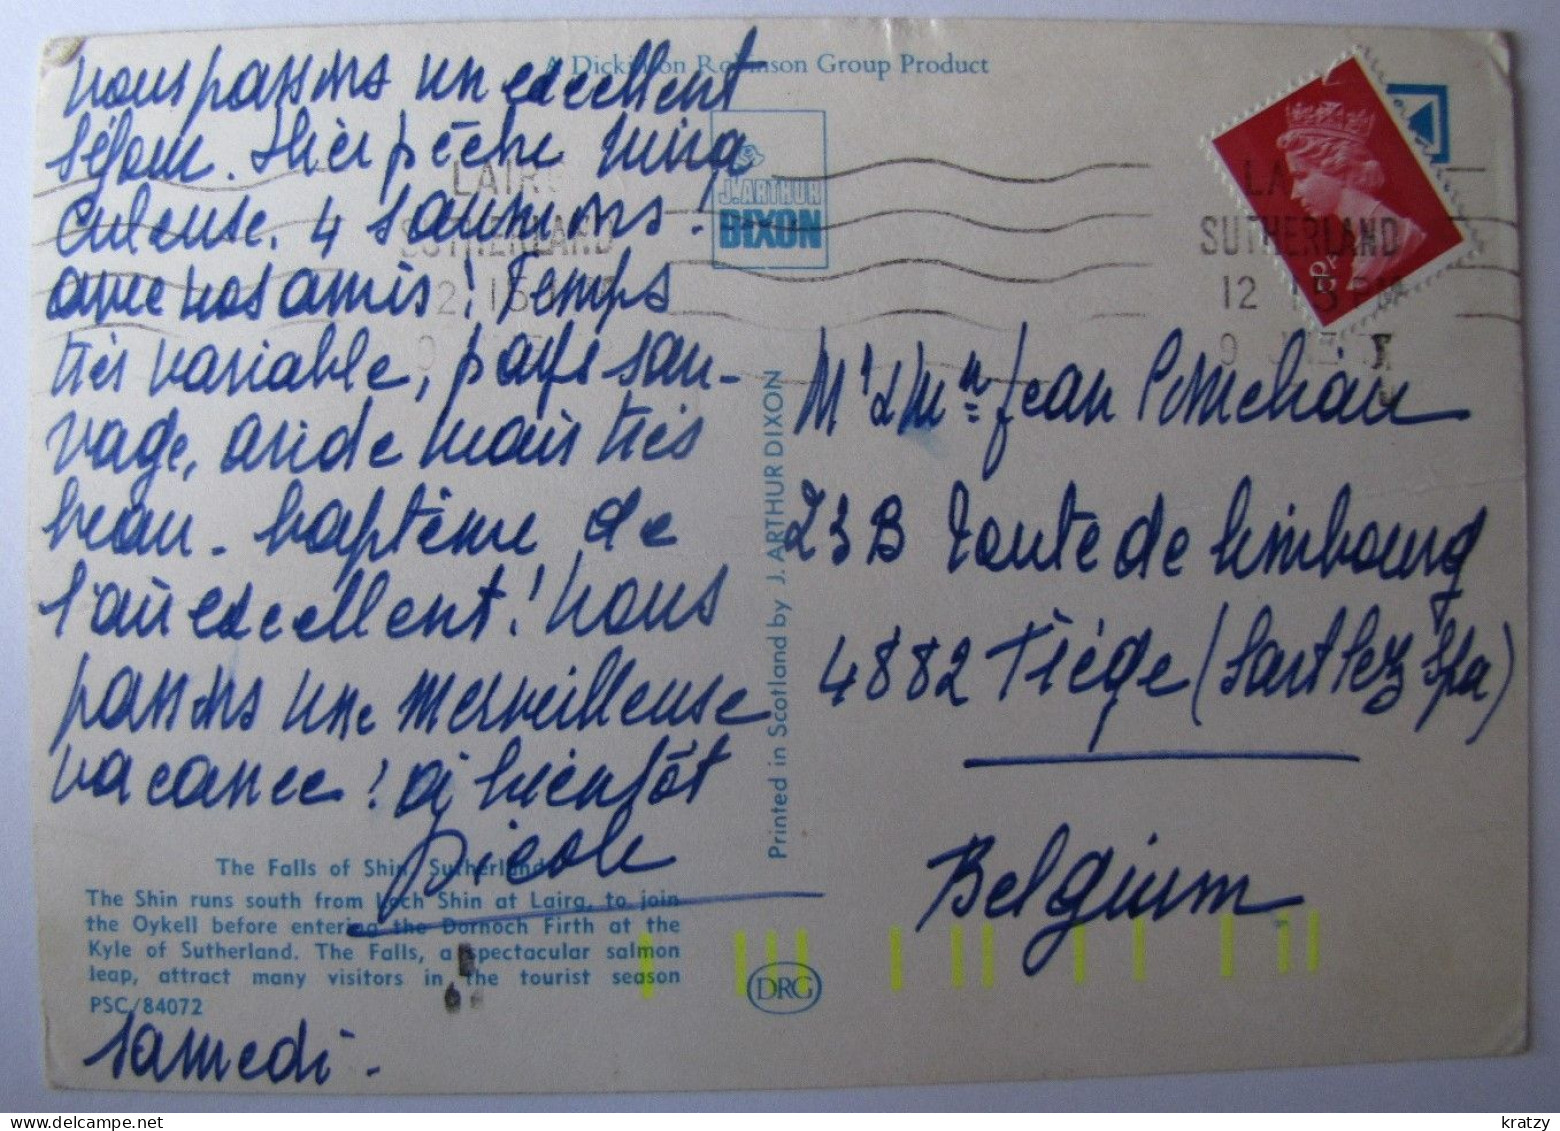 A Dickinson Robinson Group Product
nous passons un excellent
séjour. Hier pêche mira
culeuse. 4 saumons!
avec nos amis! Temps
très variable, pays sau-
vage, aride mais très
beau - baptême de
l'air excellent! nous
passons une merveilleuse
vacance! à bientôt
Nicole
samedi.
The Falls of Shin, Sutherland
The Shin runs south from Loch Shin at Lairg, to join
the Oykell before entering the Dornoch Firth at the
Kyle of Sutherland. The Falls, a spectacular salmon
leap, attract many visitors in the tourist season
PSC/84072
J. ARTHUR
DIXON
Printed in Scotland by J. ARTHUR DIXON
DRG
LAIRG
SUTHERLAND
12 15 PM
Mr & Mme Jean
23B route de Limbourg
4882 Tiège (Sart lez Spa)
Belgium
kratzy